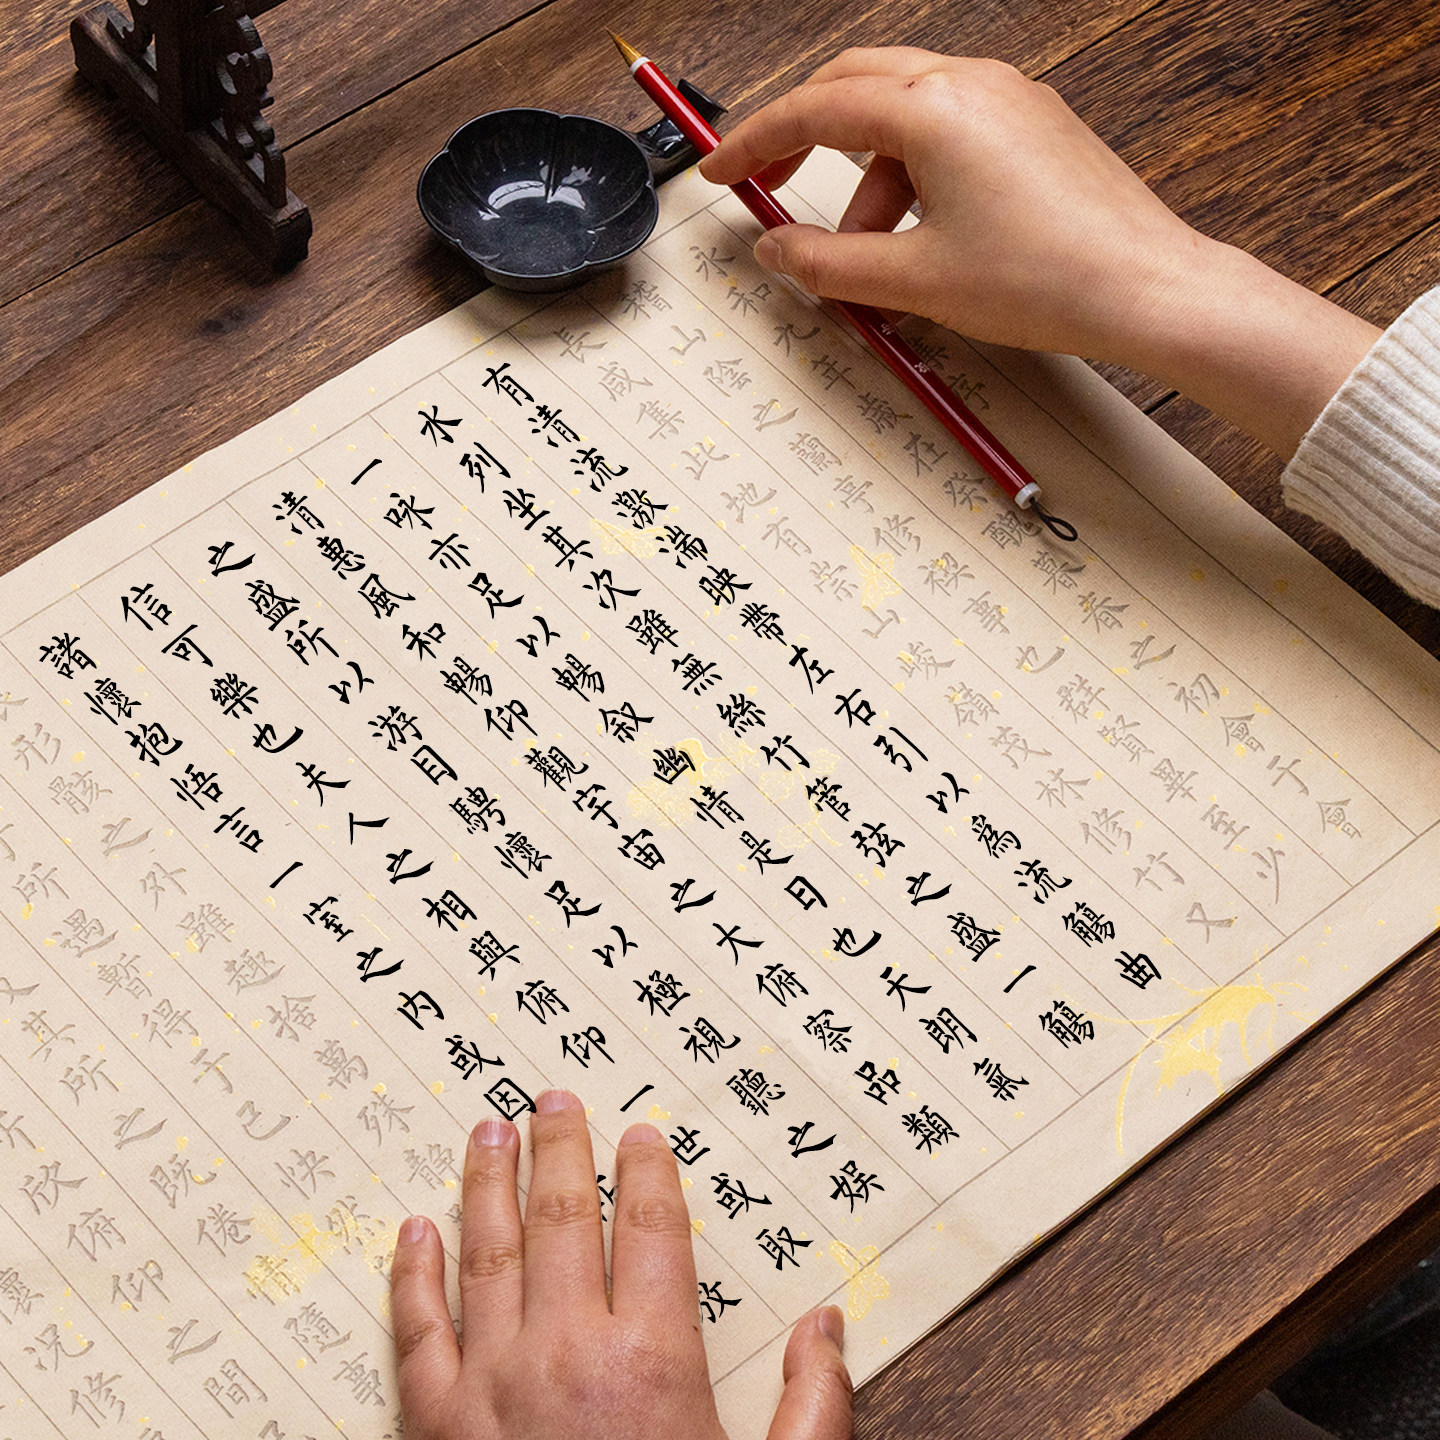 集序
永和九年歲在癸醜暮春之初會于會
稽山陰之蘭亭修禊事也群賢畢至少
長咸集此地有崇山峻嶺茂林修竹又
有清流激湍映帶左右引以為流觴曲
水列坐其次雖無絲竹管弦之盛一觴
一咏亦足以暢叙幽情是日也天朗氣
清惠風和暢仰觀宇宙之大俯察品類
之盛所以游目騁懷足以極視聽之娛
信可樂也夫人之相與俯仰一世或取
諸懷抱悟言一室之内或因放
形骸之外雖趣捨萬殊靜
所遇暫得于己快然
其所之既倦情隨事
所欣俯仰之間
懷況修